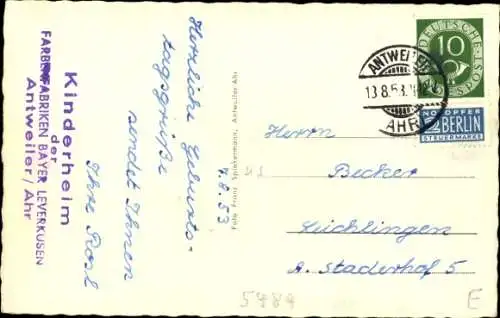 Kinderheim
der
FARBENFABRIKEN BAYER LEVERKUSEN
Antweiler/Ahr
Herzliche Geburts-
tagsgrüße
sendet Ihnen
Ihre Rosl
9.8.53
Foto Franz Spinkermann, Antweiler-Ahr
DEUTSCHE BUNDESPOST
10
ANTWEILER
13.8.53.
AHR
NOTOPFER
2 BERLIN
STEUERMARKE
Herrn
Becker
Leichlingen
A. Staderhof 5
5984
E